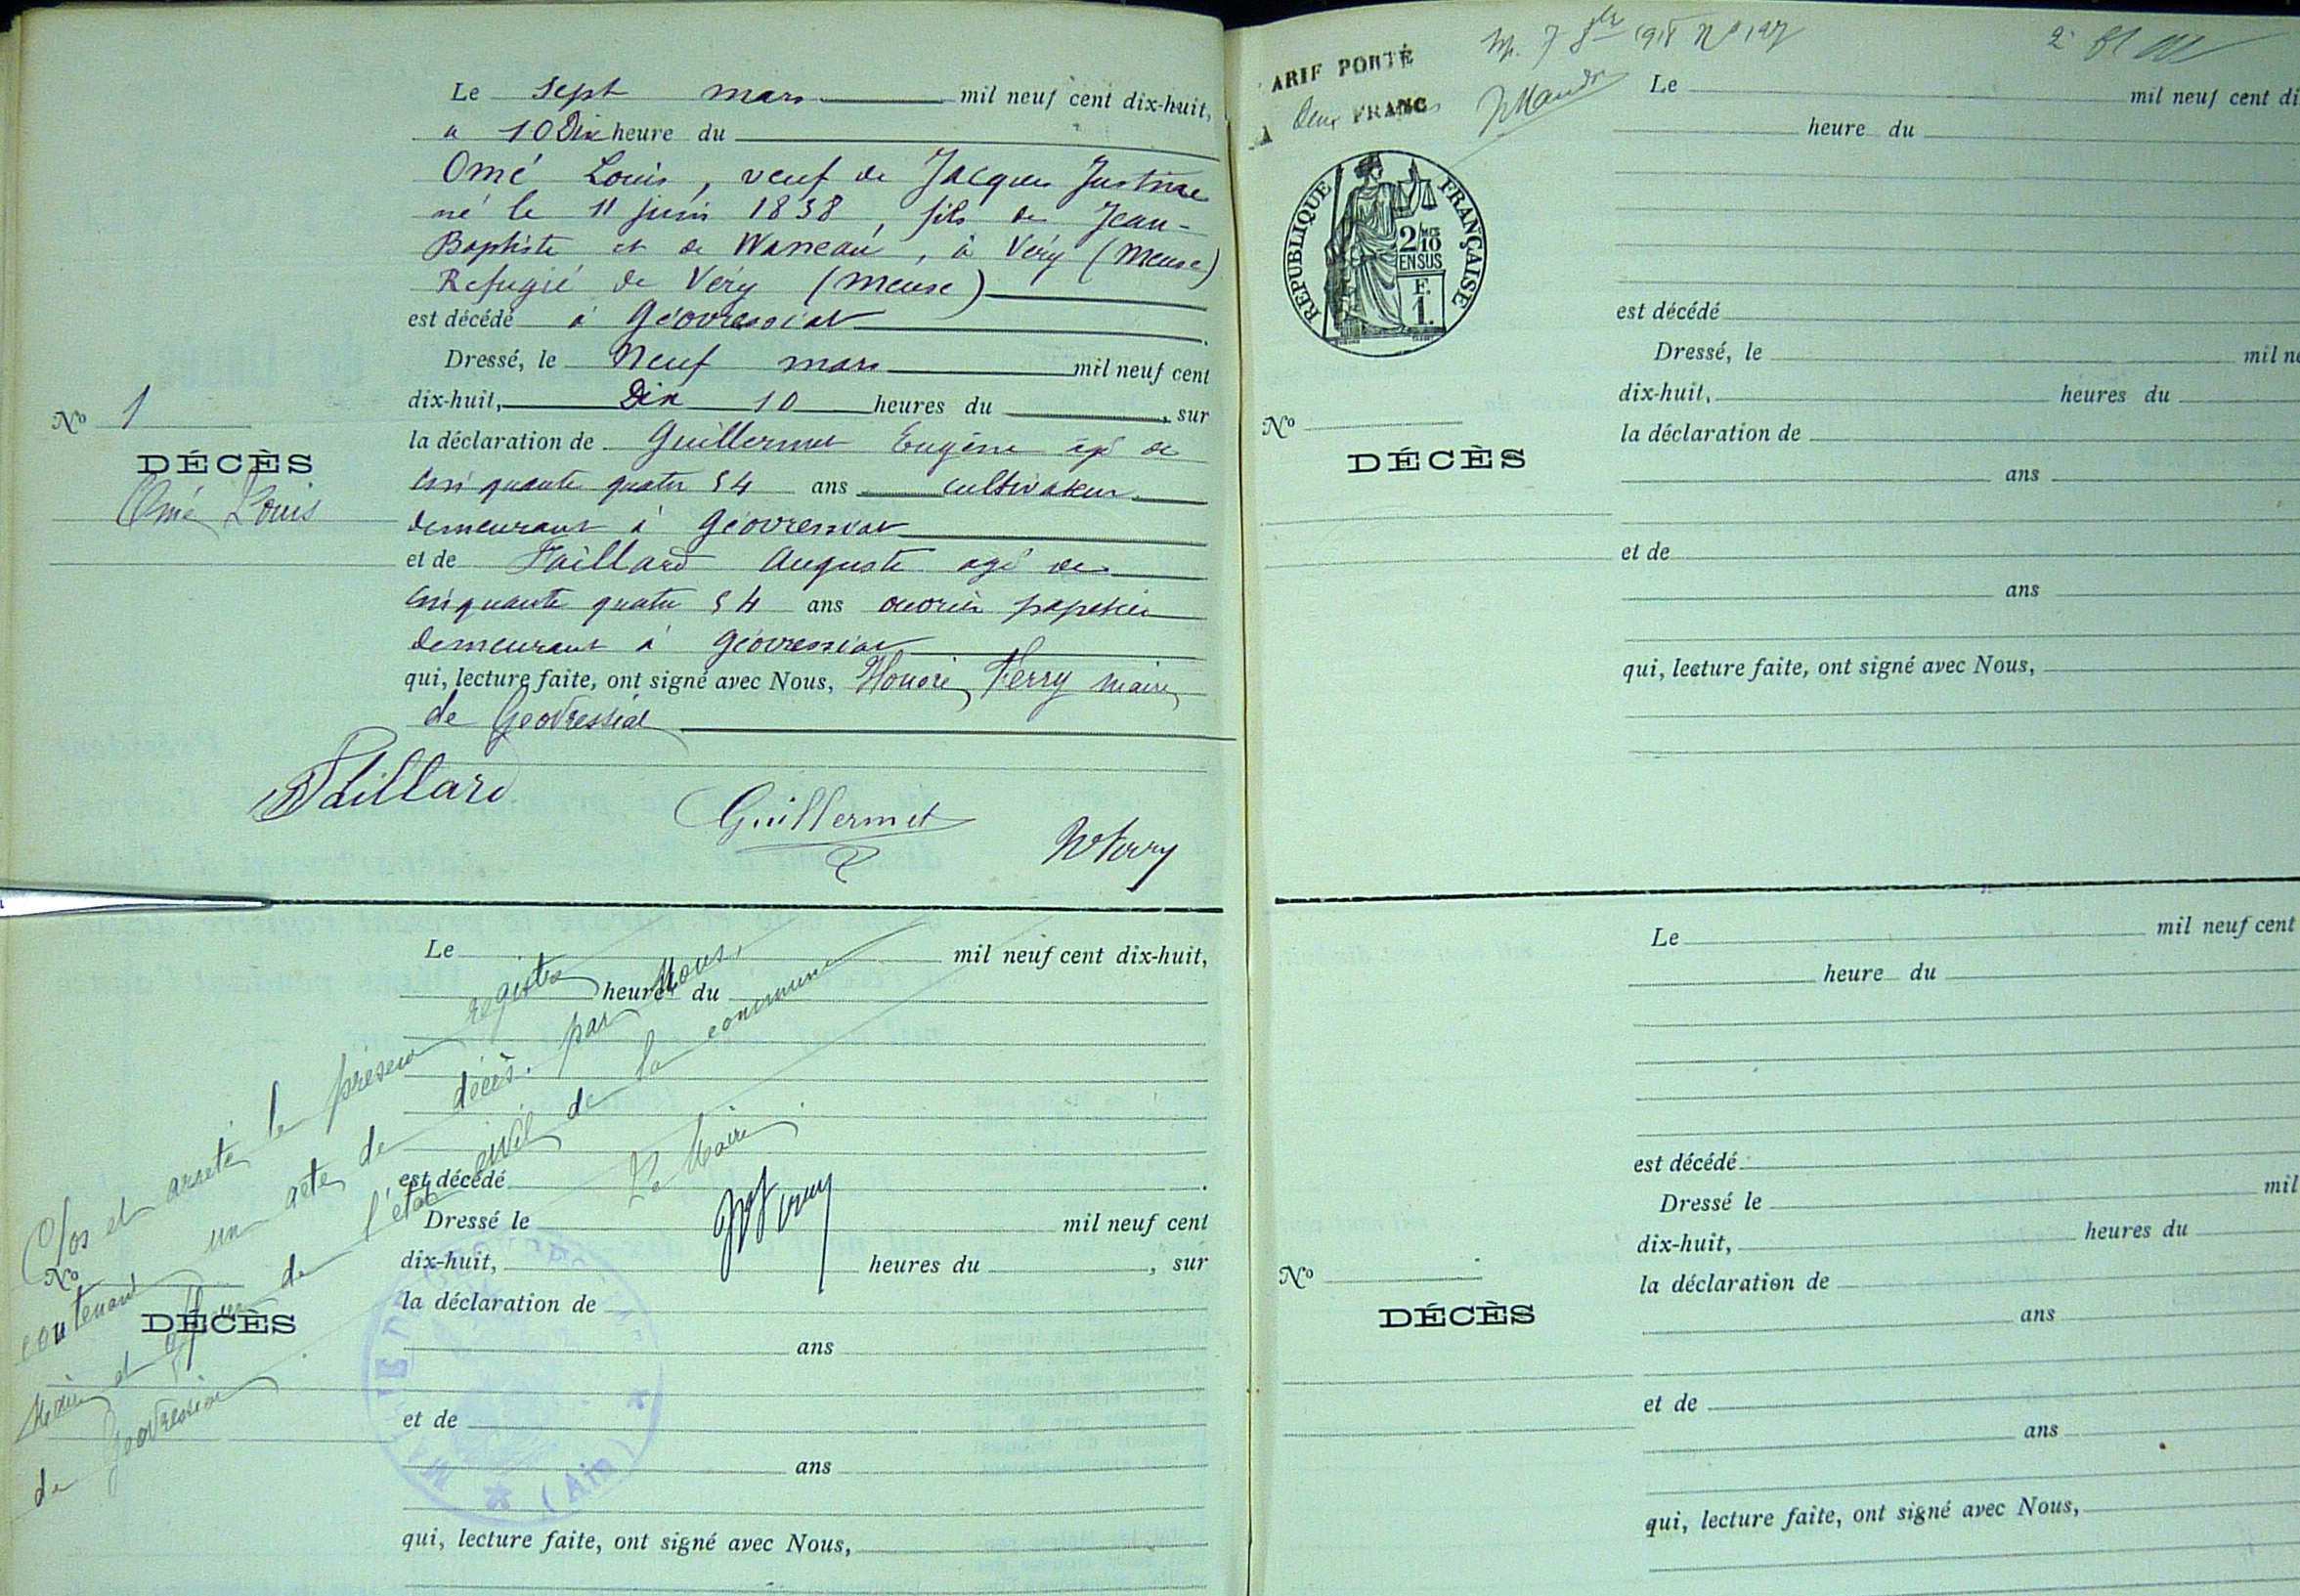 Le sept mars mil neuf cent dix-huit,
a 10 Dix heure du
Omé Louis, veuf de Jacques Justine
né le 11 juin 1838, fils de Jean-
Baptiste et de , à Véry (Meuse)
Refugié de Véry (Meuse)
est décédé à Géovressiat
Dressé, le Neuf mars mil neuf cent
dix-huit, Dix 10 heures du , sur
la déclaration de Guillermet Eugène agé de
No 1
DÉCÈS
Omé Louis
cinquante quatre 54 ans cultivateur
demeurant à Géovressiat
et de Taillard Auguste agé de
cinquante quatre 54 ans ouvrier papetier
demeurant à Géovressiat
qui, lecture faite, ont signé avec Nous, Honoré Ferry maire
de Géovressiat
Taillard
Guillermet
Ferry
Le mil neuf cent dix-huit,
heure du
est décédé .
Dressé le mil neuf cent
dix-huit, heures du , sur
la déclaration de
No
DÉCÈS
ans
et de
ans
qui, lecture faite, ont signé avec Nous,
Clos et arrêté le présent registre
contenant un acte de décès. par Nous,
Maire et officier de l'état civil de la commune
de Géovressiat
Le Maire
MAIRIE DE
(Ain)
ARIF PORTÉ
A Deux FRANCS
RÉPUBLIQUE FRANÇAISE
2/10
EN SUS
F.
1.
Le mil neuf cent di
heure du
est décédé
Dressé, le mil ne
dix-huit, heures du
la déclaration de
No
DÉCÈS
ans
et de
ans
qui, lecture faite, ont signé avec Nous,
Le mil neuf cent
heure du
est décédé
Dressé le mil
dix-huit, heures du
No
la déclaration de
DÉCÈS
ans
et de
ans
qui, lecture faite, ont signé avec Nous,